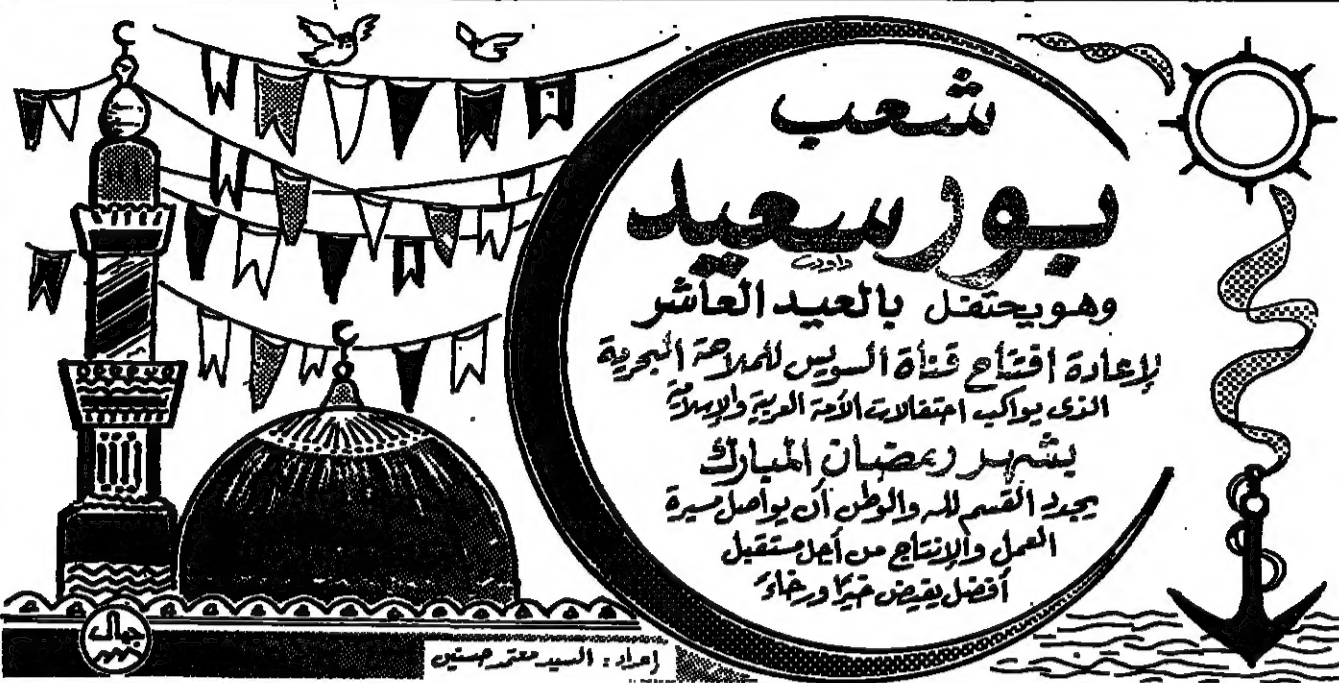 شعب
بورسعيد
وهو يحتفل بالعيد العاشر
لإعادة افتتاح قناة السويس للملاحة البحرية
الذى يواكب احتفالات الأمة العربية والإسلامية
بشهر رمضان المبارك
يجدد القسم لله والوطن أن يواصل مسيرة
العمل والإنتاج من أجل مستقبل
أفضل يفيض خيرًا ورخاءً
جمال
إعداد: السيد معتمر حسنين